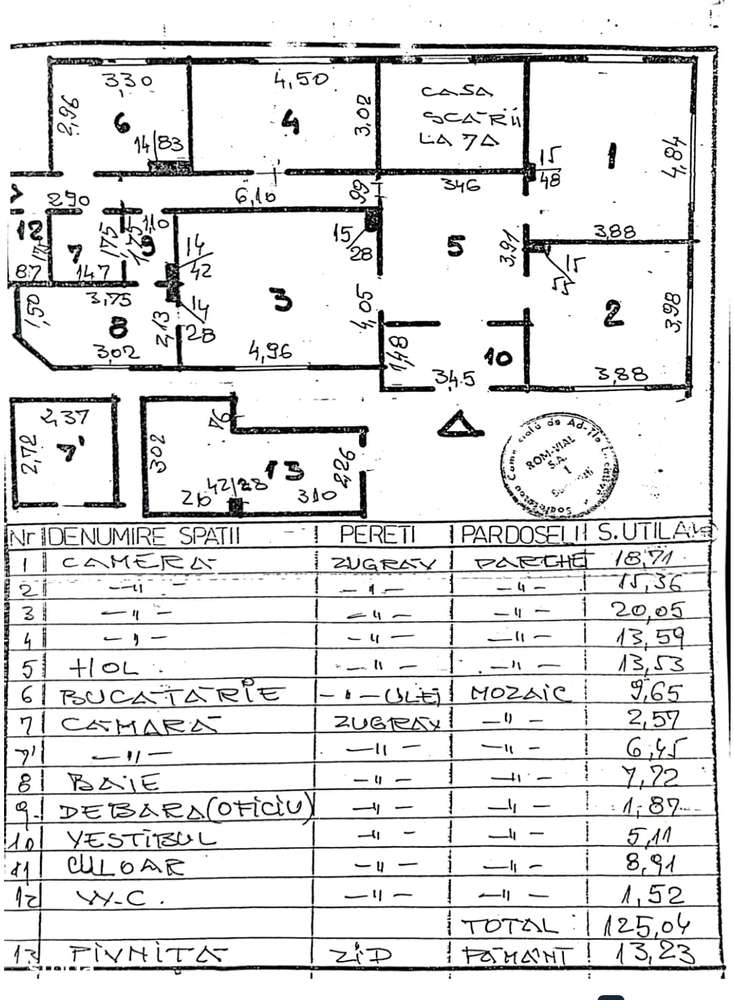 3,30
4,50
CASA
SCĂRII
LA 7A
2,96
6
4
3,02
1
4,84
14/83
15/48
2,90
6,10
99
346
12
7
1,75
1,75
9
1,10
15/28
5
3,91
3,88
87
1,47
14/42
3
15/55
3,75
14/28
4,05
2
3,98
1,50
8
2,13
3,02
4,96
1,48
10
3,45
3,88
2,37
2,72
7'
3,02
76
13
2,26
2,10
42/28
3,10
ROM-VIAL
S.A.
1
Nr DENUMIRE SPATII PERETI PARDOSELII S.UTILA
1 CAMERA ZUGRAV PARCHET 18,71
2 -〃- -〃- -〃- 15,36
3 -〃- -〃- -〃- 20,05
4 -〃- -〃- -〃- 13,59
5 HOL -〃- -〃- 13,53
6 BUCATARIE -〃-ULEI MOZAIC 9,65
7 CAMARA ZUGRAV -〃- 2,57
7' -〃- -〃- -〃- 6,45
8 BAIE -〃- -〃- 7,72
9 DEBARA(OFICIU) -〃- -〃- 1,87
10 VESTIBUL -〃- -〃- 5,11
11 CULOAR -〃- -〃- 8,91
12 W.C. -〃- -〃- 1,52
TOTAL 125,04
13 PIVNITA ZID PAMANT 13,23